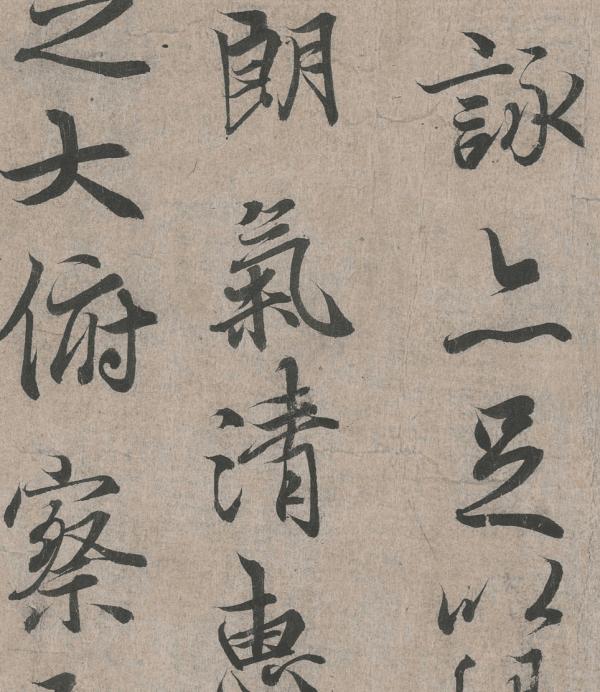 詠亦足以
朗氣清惠
之大俯察